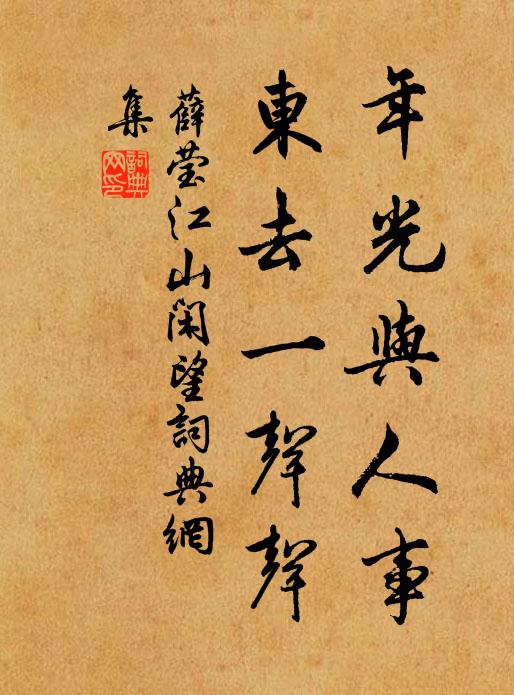 年光與人事
東去一聲聲
薛瑩江山閑望詞典網
集
詞典
网印